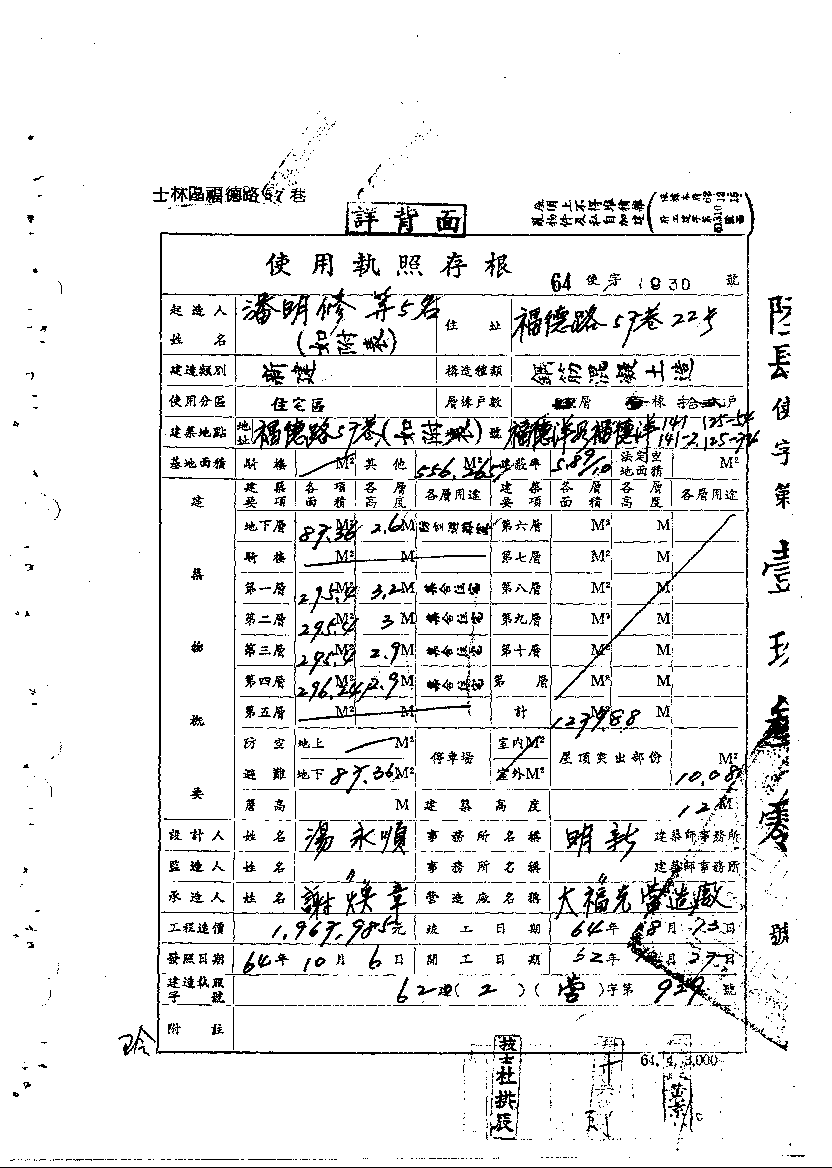 士林區福德路57巷
詳背面
屋頂上不得堆積雜亂物件及私自加建
使用執照存根
64 使字 1930 號
起造人姓名 潘明修 等5名 (如附表) 住址 福德路57巷22号
建造類別 新建 構造種類 鋼筋混凝土造
使用分區 住宅區 層棟戶數 層 棟 戶
建築地點 地址 福德路57巷 號
基地面積 騎樓 M² 其他 556.265 M² 建蔽率 5.89/10 法定空地面積 M²
建築物概要 建築要項 各項面積 各層高度 各層用途 建築要項 各層面積 各層高度 各層用途
地下層 87.36 M² 2.6 M 第六層 M² M
騎樓 M² M 第七層 M² M
第一層 295.4 M² 3.2 M 集合住宅 第八層 M² M
第二層 295.4 M² 3 M 集合住宅 第九層 M² M
第三層 295.4 M² 2.9 M 集合住宅 第十層 M² M
第四層 296.24 M² 2.9 M 集合住宅 第 層 M² M
第五層 M² M 計 1239.88 M² M
防空 地上 M² 停車場 室內 M² 屋頂突出部份 M²
避難 地下 87.36 M² 室外 M² 10.08
簷高 M 建築高度 12 M
設計人 姓名 湯永順 事務所名稱 明新 建築師事務所
監造人 姓名 〃 事務所名稱 〃 建築師事務所
承造人 姓名 謝煥章 營造廠名稱 大福克營造廠
工程造價 1,967,985元 竣工日期 64年8月23日
發照日期 64年10月6日 開工日期 62年 月27日
建造執照字號 62建(2)(營)字第929號
附註
64. 4. 3,000
技士杜拱辰
使字第
號